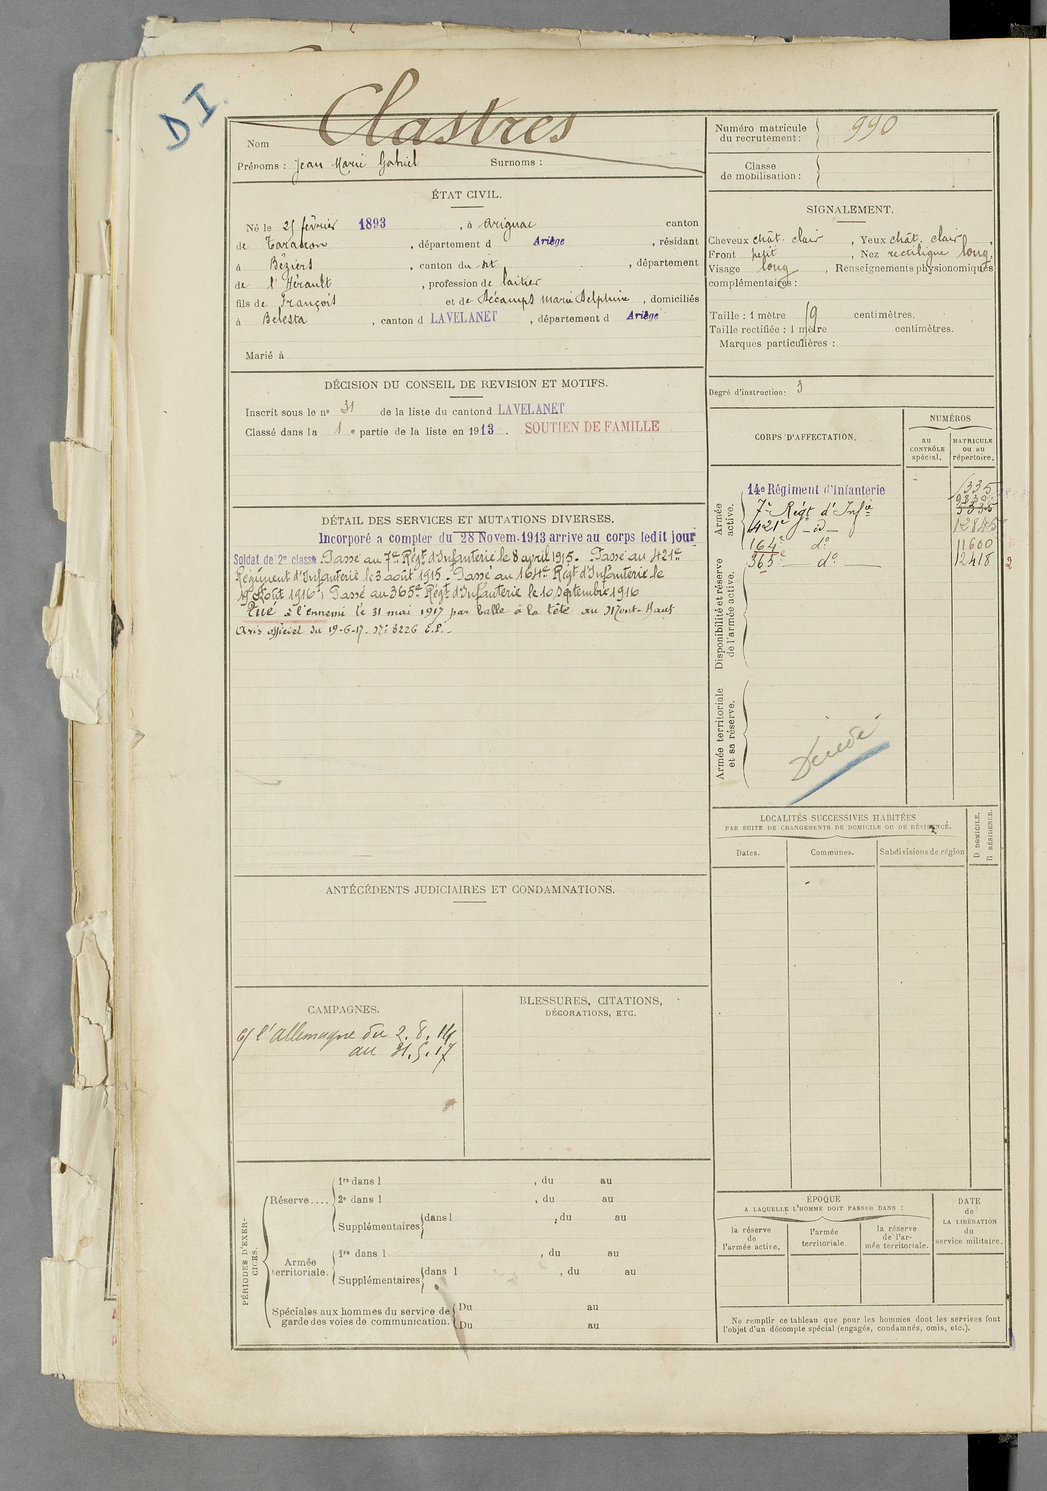 D I
Nom Clastres
Prénoms : Jean Marie Gabriel Surnoms :
ÉTAT CIVIL.
Né le 25 février 1893, à Arignac canton
de Tarascon, département d Ariège, résidant
à Béziers, canton du dit, département
de l'Hérault, profession de laitier
fils de François et de Décamps Marie Delphine, domiciliés
à Belesta, canton d LAVELANET, département d Ariège
Marié à
DÉCISION DU CONSEIL DE REVISION ET MOTIFS.
Inscrit sous le n° 31 de la liste du canton d LAVELANET
Classé dans la 1 e partie de la liste en 1913. SOUTIEN DE FAMILLE
DÉTAIL DES SERVICES ET MUTATIONS DIVERSES.
Incorporé a compter du 28 Novem. 1913 arrive au corps ledit jour
Soldat de 2e classe. Passé au 7e Régt d'Infanterie le 8 avril 1915. Passé au 421e
Régiment d'Infanterie le 3 août 1915. Passé au 164e Régt d'Infanterie le
Août 1916. Passé au 365e Régt d'Infanterie le 10 septembre 1916
Tué à l'ennemi le 31 mai 1917 par balle à la tête au Mont-Haut
Avis officiel du 19-6-17. N° 8226
ANTÉCÉDENTS JUDICIAIRES ET CONDAMNATIONS.
CAMPAGNES.
c/ l'allemagne du 2.8.14
au 31.5.17
BLESSURES, CITATIONS,
DÉCORATIONS, ETC.
PÉRIODES D'EXER-
CICES.
Réserve....
1re dans l , du au
2e dans l , du au
Supplémentaires dans l , du au
Armée
territoriale.
1re dans l , du au
Supplémentaires dans l , du au
Spéciales aux hommes du service de
garde des voies de communication.
Du au
Du au
Numéro matricule
du recrutement : 990
Classe
de mobilisation :
SIGNALEMENT.
Cheveux chât. clair, Yeux chât. clair,
Front petit, Nez rectiligne long,
Visage long, Renseignements physionomiques
complémentaires :
Taille : 1 mètre 59 centimètres.
Taille rectifiée : 1 mètre centimètres.
Marques particulières :
Degré d'instruction : 3
CORPS D'AFFECTATION.
NUMÉROS
au
CONTRÔLE
spécial.
MATRICULE
ou au
répertoire.
Armée
active.
14e Régiment d'Infanterie
7e Régt d'Infie
421e - d -
164e do 11600
365e do 12418
Disponibilité et réserve
de l'armée active.
Armée territoriale
et sa réserve.
Décédé
LOCALITÉS SUCCESSIVES HABITÉES
PAR SUITE DE CHANGEMENTS DE DOMICILE OU DE RÉSIDENCE.
Dates.
Communes.
Subdivisions de région
D DOMICILE.
R RÉSIDENCE.
ÉPOQUE
A LAQUELLE L'HOMME DOIT PASSER DANS :
la réserve
de
l'armée active.
l'armée
territoriale.
la réserve
de l'ar-
mée territoriale.
DATE
de
LA LIBÉRATION
du
service militaire.
Ne remplir ce tableau que pour les hommes dont les services font
l'objet d'un décompte spécial (engagés, condamnés, omis, etc.).